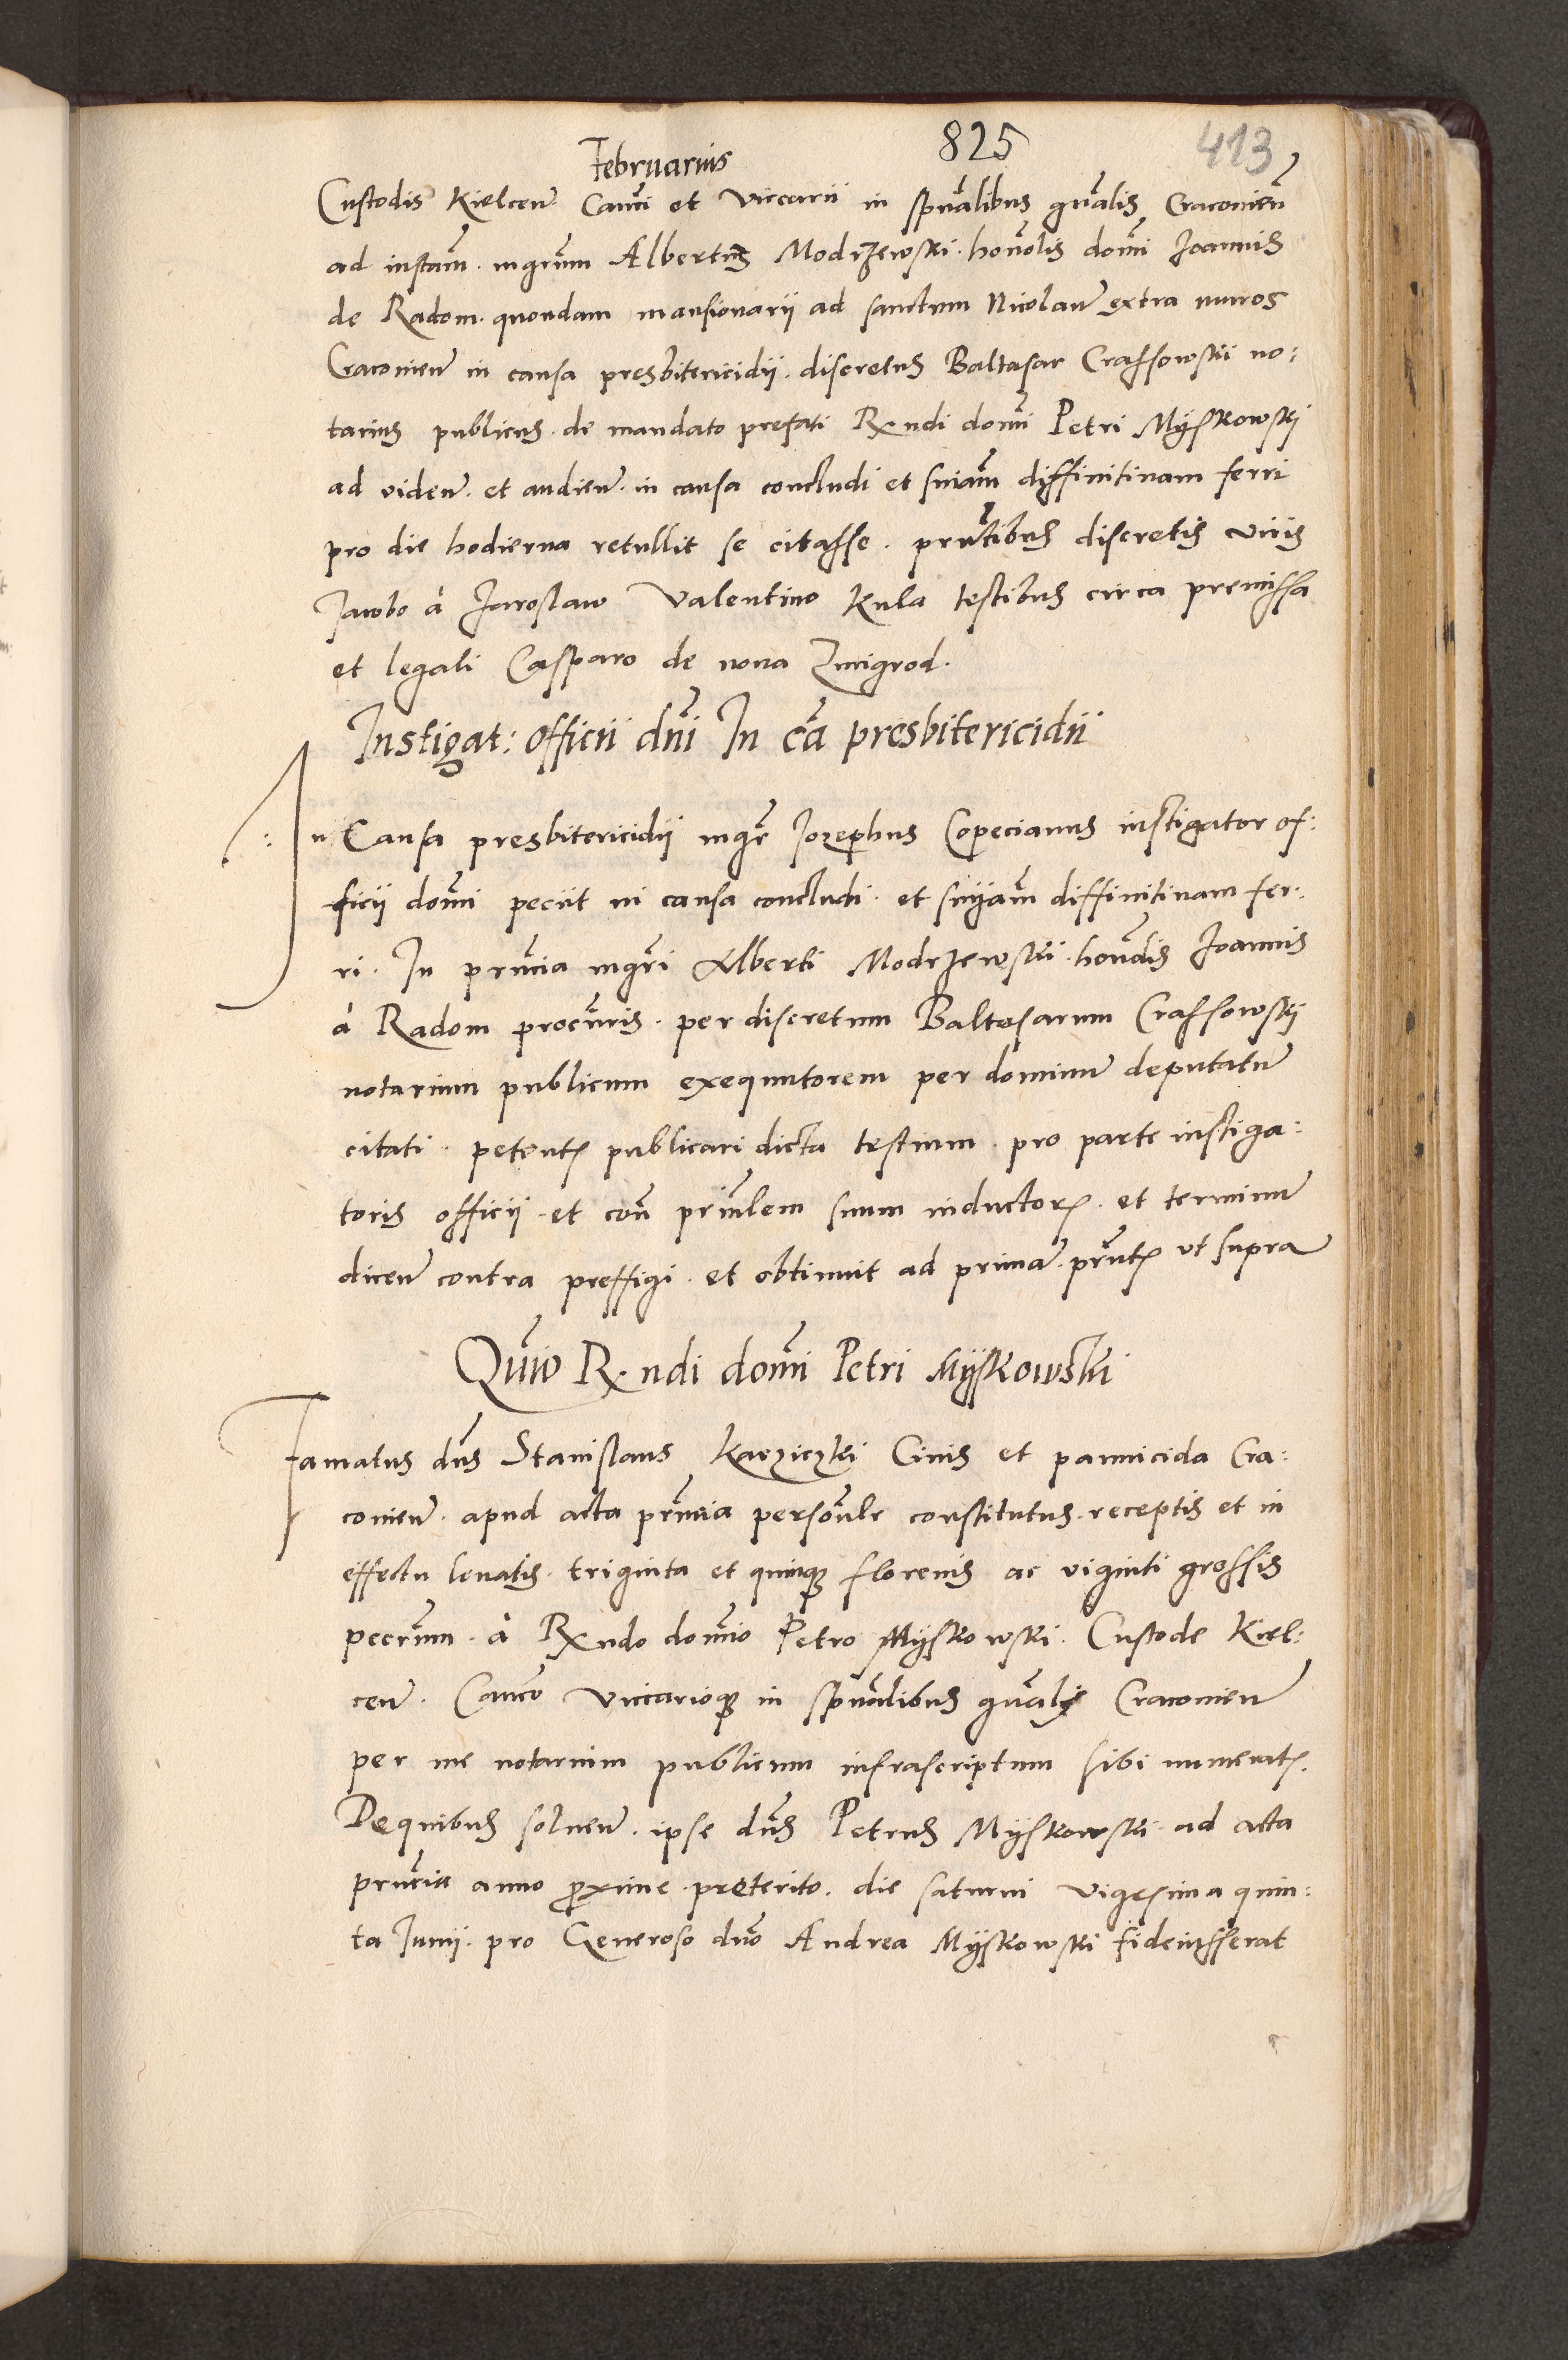 Februarius 825 413
Custodis Kielcen Canci et Viccarii in spũalibus gñalis Cracovien̄
ad instam̃ · mgrum Albertus Modrzewski · honolis domĩ Joannis
de Radom · quondam mansionarii ad sanctum Nicolaum extra muros
Cracovien in causa presbitericidii · discretus Baltasar Crassowskii no:
tarius publicus · de mandato prefati Rx̄ndi domĩ Petri Myskowskij
ad viden · et audien · in causa concludi et sniam̃ diffinitivam ferri
pro die hodierna retullit se citasse · pñtibus discretis viris
Jacobo à Jaroslaw Valentino Kula testibus circa premissa
et legali Casparo de nova Zmigrod ·
Instigat: officii dñi In cã presbitericidii
In Causa presbitericidii mgr̃ Jozephus Copecianus instigator of:
ficii domĩ peciit in causa concludi · et snĩam diffinitivam fer:
ri · In pñcia mgri Alberti Modrzewskii · honolis Joannis
à Radom procuris · per discretum Baltasarum Crassowskij
notarium publicum exequutorem per dominum deputatum
citati · petentis publicari dicta testium · pro parte instiga:
toris officii · et con̄ prin̄lem suum inductor · et terminum
dicen contra preffigi · et obtinuit ad primam · pñte ut supra
Quio Rx̄ndi domĩ Petri Myskowskii
Famatus dñs Stanislaus Karziczki Civis et pannicida Cra:
covien · apud acta pñcia persoñlr constitutus · receptis et in
effectu levatis · triginta et quinque florenis ac viginti grossis
pecrum · à Rx̄ndo domĩo Petro Myskowski · Custode Kiel:
cen · Canco Viccarioque in spũalibus gñali Cracovien
per me notarium publicum infrascriptum sibi numeratis ·
De quibus solven · ipse dñs Petrus Myskowski · ad acta
pñcia anno proxime preterito · die saturni vigesima quin:
ta Junij · pro Generoso dño Andrea Myskowski fideiusserat